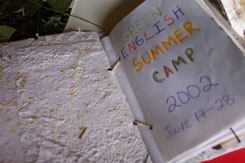 GREEN
ENGLISH
SUMMER
CAMP
2002
JUNE 17-28